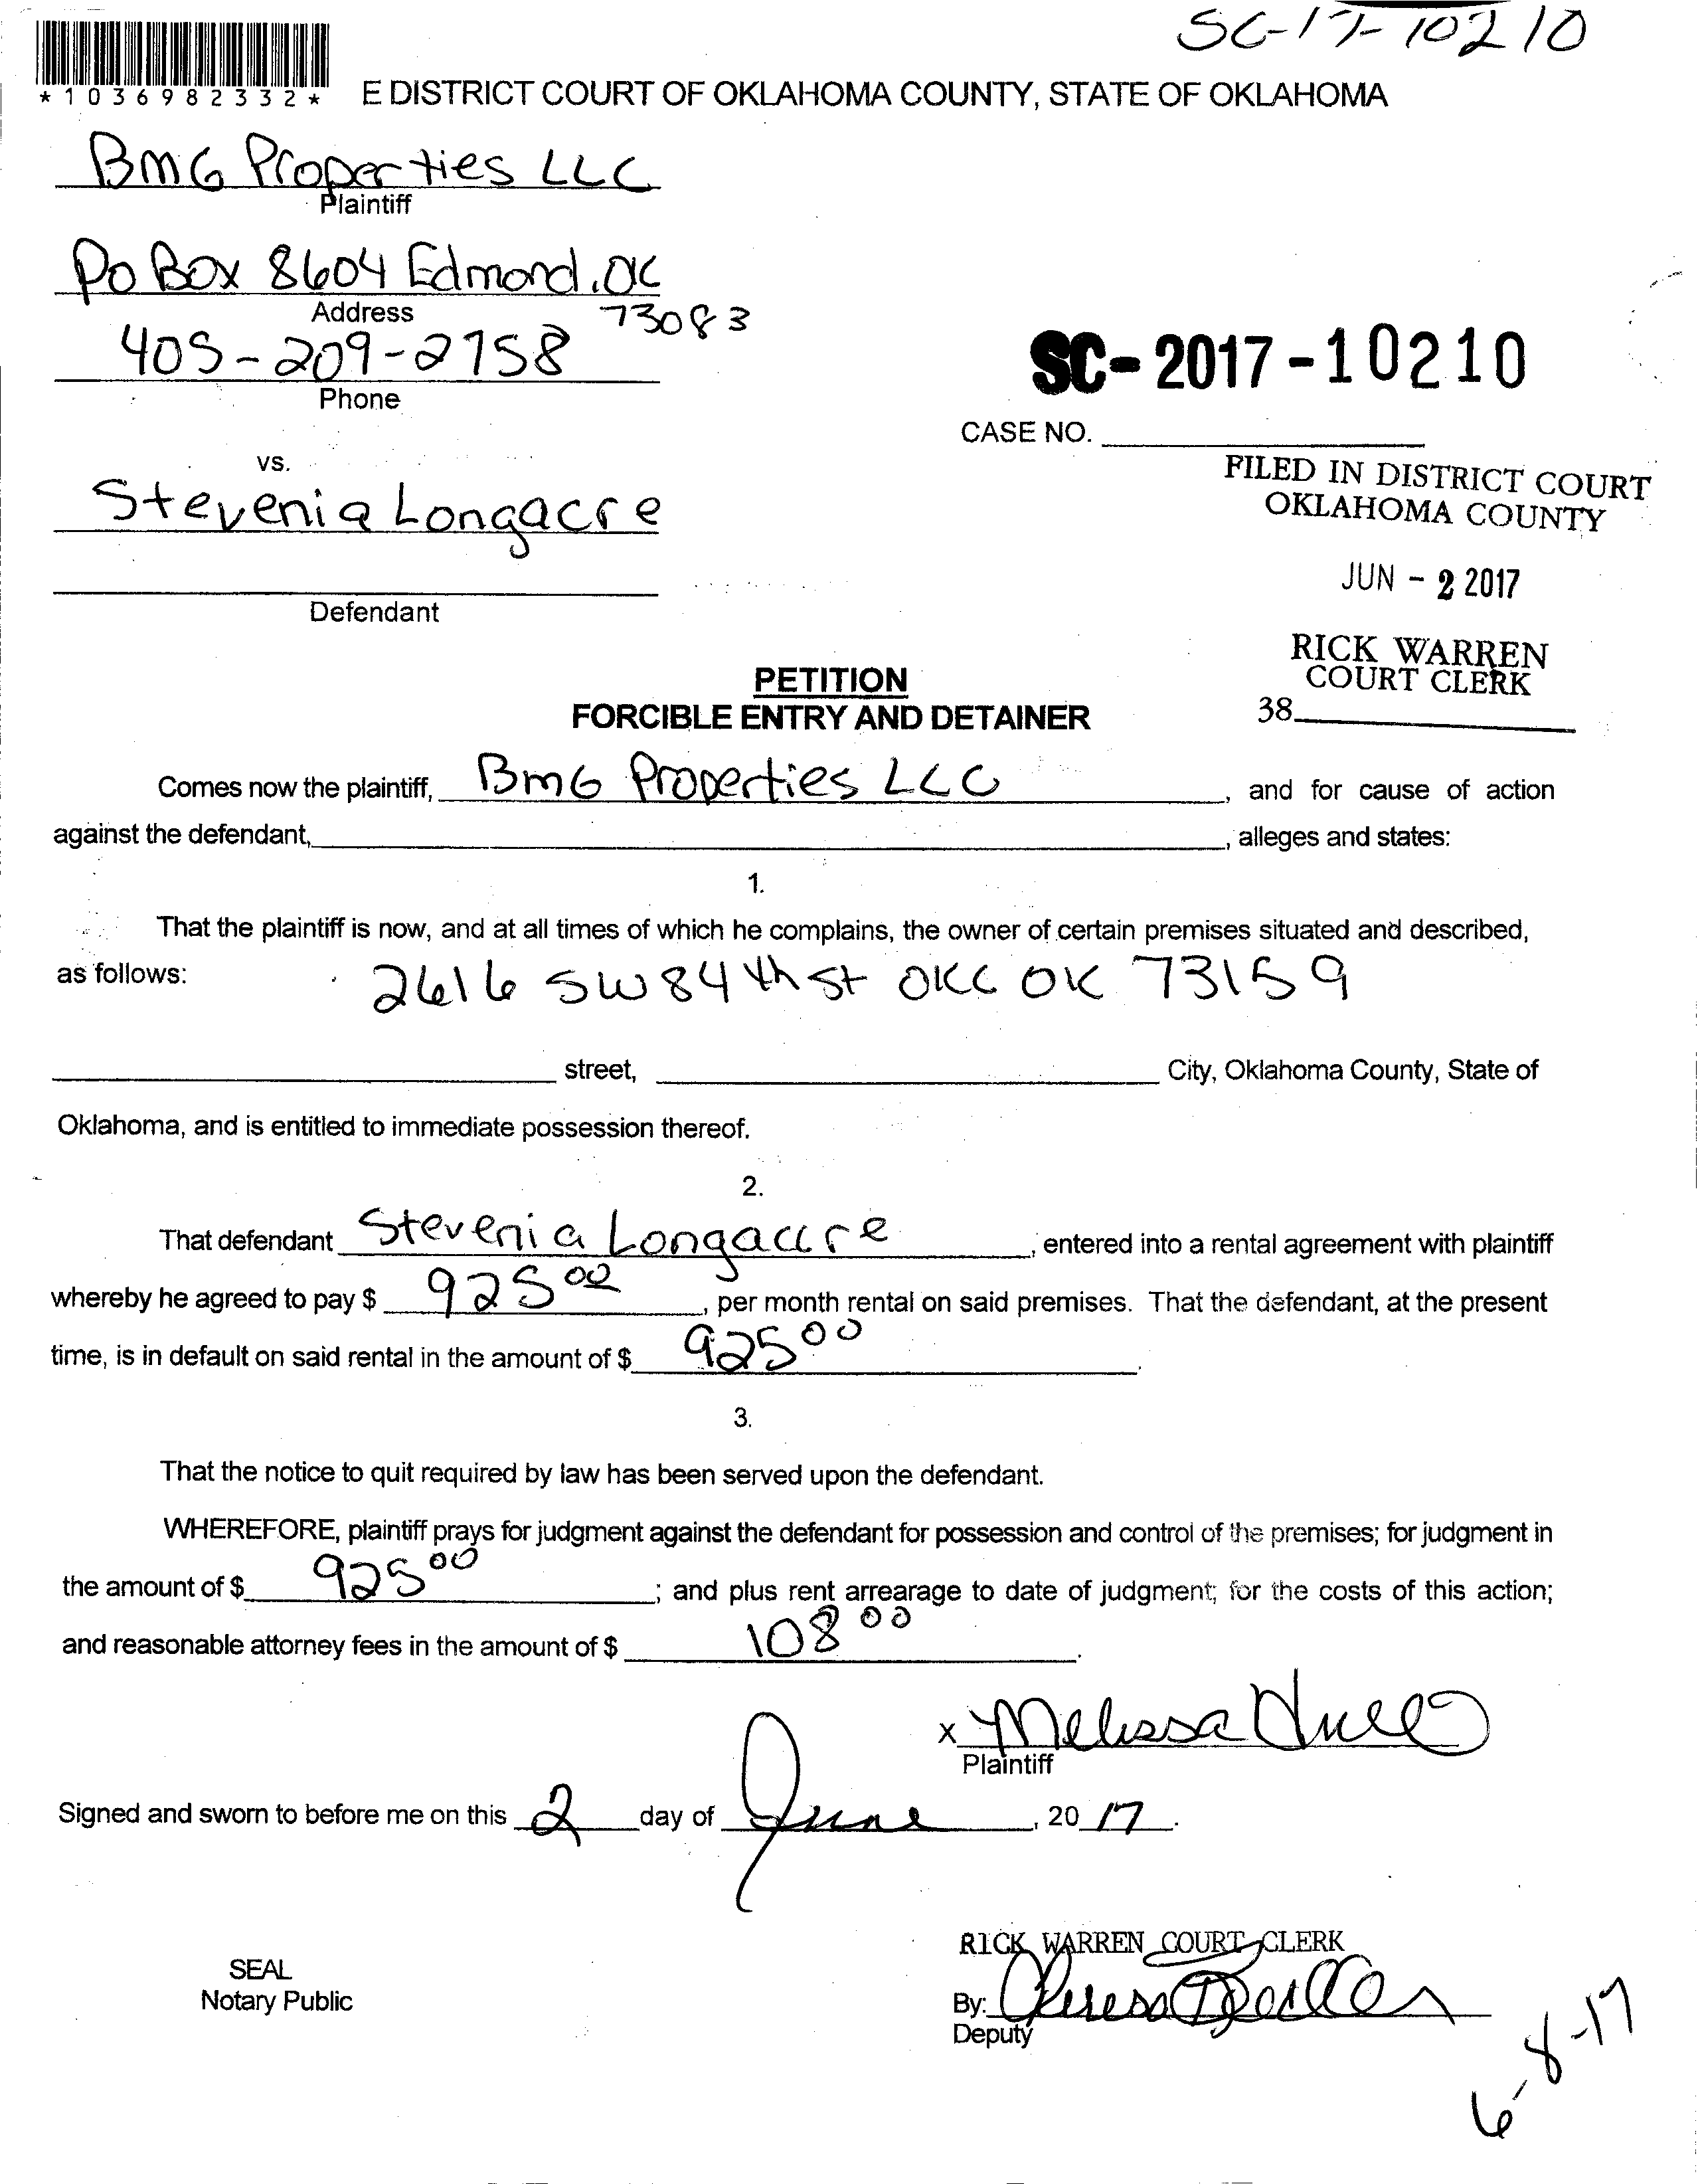 SC-17-10210
*1036982332*
E DISTRICT COURT OF OKLAHOMA COUNTY, STATE OF OKLAHOMA
BMG Properties LLC
Plaintiff
PO Box 8604 Edmond, OK
73083
Address
405-209-2758
Phone
SC-2017-10210
CASE NO.
vs.
Stevenia Longacre
Defendant
FILED IN DISTRICT COURT
OKLAHOMA COUNTY
JUN - 2 2017
RICK WARREN
COURT CLERK
38
PETITION
FORCIBLE ENTRY AND DETAINER
Comes now the plaintiff, BMG Properties LLC, and for cause of action
against the defendant, , alleges and states:
1.
That the plaintiff is now, and at all times of which he complains, the owner of certain premises situated and described,
as follows: 2616 SW 84th St OKC OK 73159
street, City, Oklahoma County, State of
Oklahoma, and is entitled to immediate possession thereof.
2.
That defendant Stevenia Longacre, entered into a rental agreement with plaintiff
whereby he agreed to pay $ 925 00, per month rental on said premises. That the defendant, at the present
time, is in default on said rental in the amount of $ 925 00.
3.
That the notice to quit required by law has been served upon the defendant.
WHEREFORE, plaintiff prays for judgment against the defendant for possession and control of the premises; for judgment in
the amount of $ 925 00; and plus rent arrearage to date of judgment; for the costs of this action;
and reasonable attorney fees in the amount of $ 108 00.
x Melissa
Plaintiff
Signed and sworn to before me on this 2 day of June, 20 17.
RICK WARREN COURT CLERK
SEAL
Notary Public
By:
Deputy
6-8-17